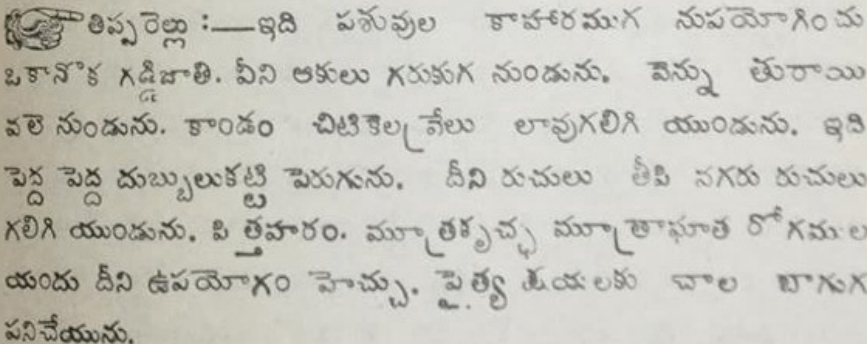 తిప్ప రెల్లు :—ఇది పశువుల కాహారముగ నుపయోగించు
ఒకానొక గడ్డిజాతి. వీని ఆకులు గరుకుగ నుండును. వెన్ను తురాయి
వలె నుండును. కాండం చిటికెల వ్రేలు లావుగలిగి యుండును. ఇది
పెద్ద పెద్ద దుబ్బులుకట్టి పెరుగును. దీని రుచులు తీపి వగరు రుచులు
గలిగి యుండును. పిత్తహరం. మూత్రకృచ్ఛ మూత్రాఘాత రోగముల
యందు దీని ఉపయోగం హెచ్చు. పైత్య చాల బాగుగ
పనిచేయును.